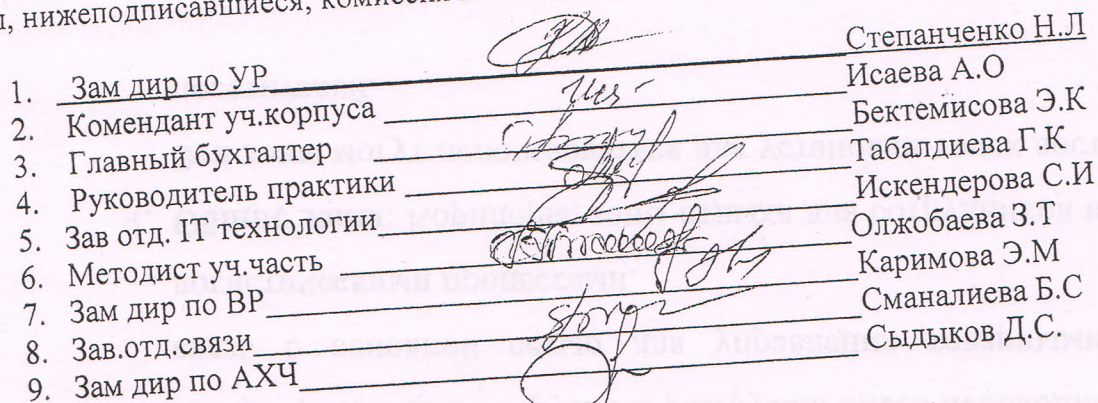 , нижеподписавшиеся,
1. Зам дир по УР Степанченко Н.Л
2. Комендант уч.корпуса Исаева А.О
3. Главный бухгалтер Бектемисова Э.К
4. Руководитель практики Табалдиева Г.К
5. Зав отд. IT технологии Искендерова С.И
6. Методист уч.часть Олжобаева З.Т
7. Зам дир по ВР Каримова Э.М
8. Зав.отд.связи Сманалиева Б.С
9. Зам дир по АХЧ Сыдыков Д.С.